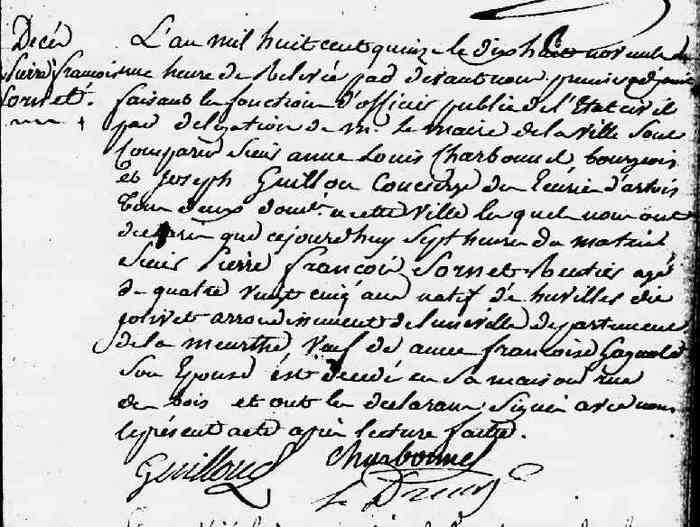 Decés
Pierre françois
Sornet.
L'an mil huit cent quinze le dix huit novembre
une heure de Relevée par devant nous premier adjoint
faisant les fonction d'officier public de l'Etat civil
par delegation de mr. le maire de la ville sont
Comparus Sieurs anne Louis Charbonnel bourgeois
et joseph Guillou Concierge des Ecuries d'artois
tous deux domt. a cette ville lesquels nous ont
declaré que cejourdhuy Sept heures du matin
Sieur Pierre françois Sornet Rentier agé
de quatre vingt cinq ans natif de
jolivet arrondissement de Luneville departement
de la meurthe veuf de anne françoise
Son Epouse est decedé en sa maison rue
des bois et ont les declarans Signés avec nous
le présent acte après lecture faitte.
Charbonnel